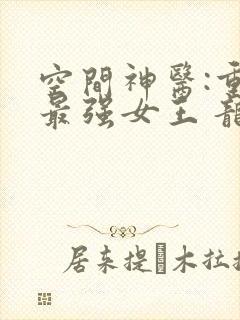 空間神醫:重
最强女王 龍
居来提·木拉拉